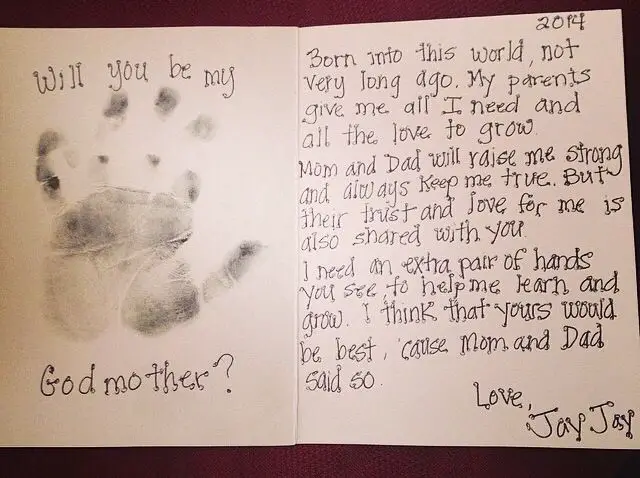 Will you be my
Godmother?
2014
Born into this world, not
very long ago. My parents
give me all I need and
all the love to grow.
Mom and Dad will raise me strong
and always keep me true. But
their trust and love for me is
also shared with you.
I need an extra pair of hands
you see, to help me learn and
grow. I think that yours would
be best, 'cause Mom and Dad
said so.
Love,
Jay Jay